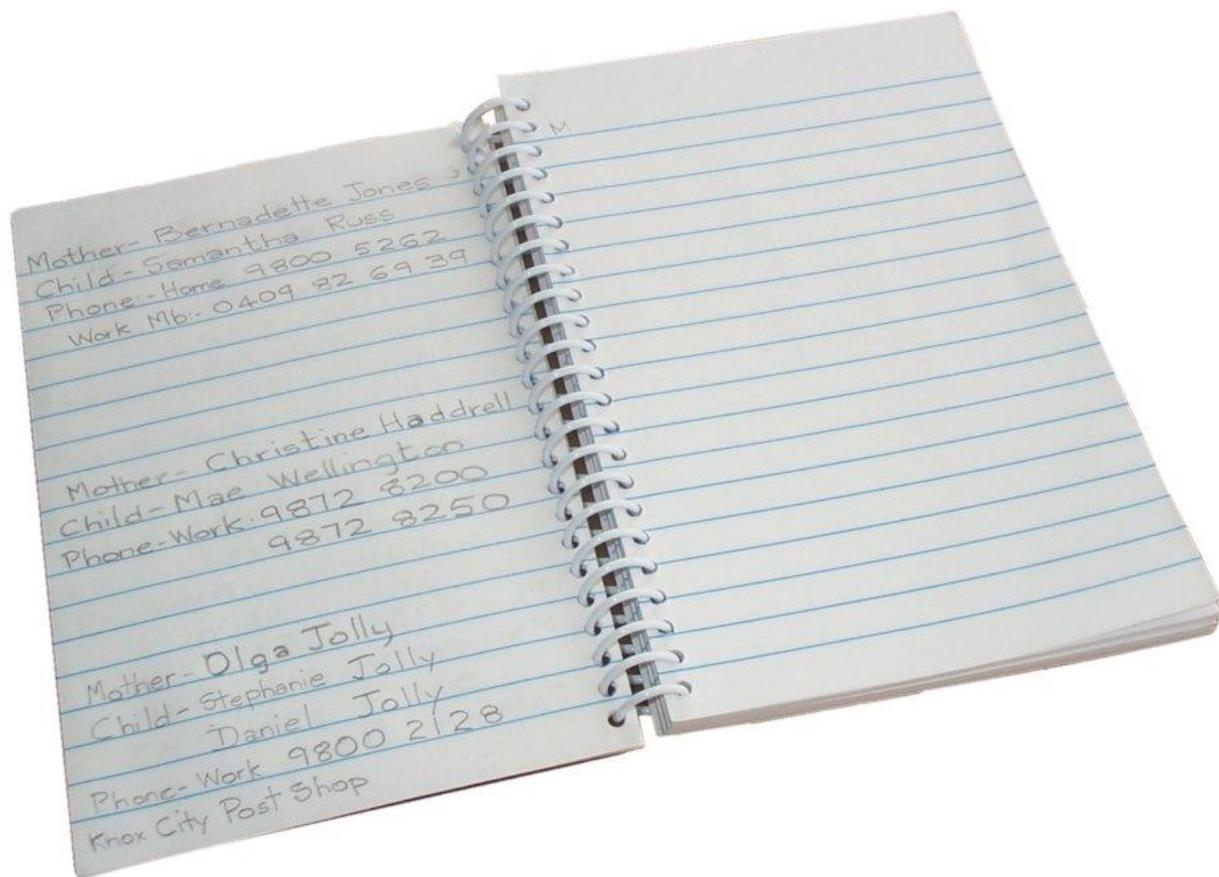 Mother- Bernadette Jones
Child- Samantha Russ
Phone:-Home 9800 5262
Work Mb:- 0409 82 69 39
Mother- Christine Haddrell
Child- Mae Wellington
Phone-Work. 9872 8200
9872 8250
Mother- Olga Jolly
Child- Stephanie Jolly
Daniel Jolly
Phone-Work 9800 2128
Knox City Post Shop
M